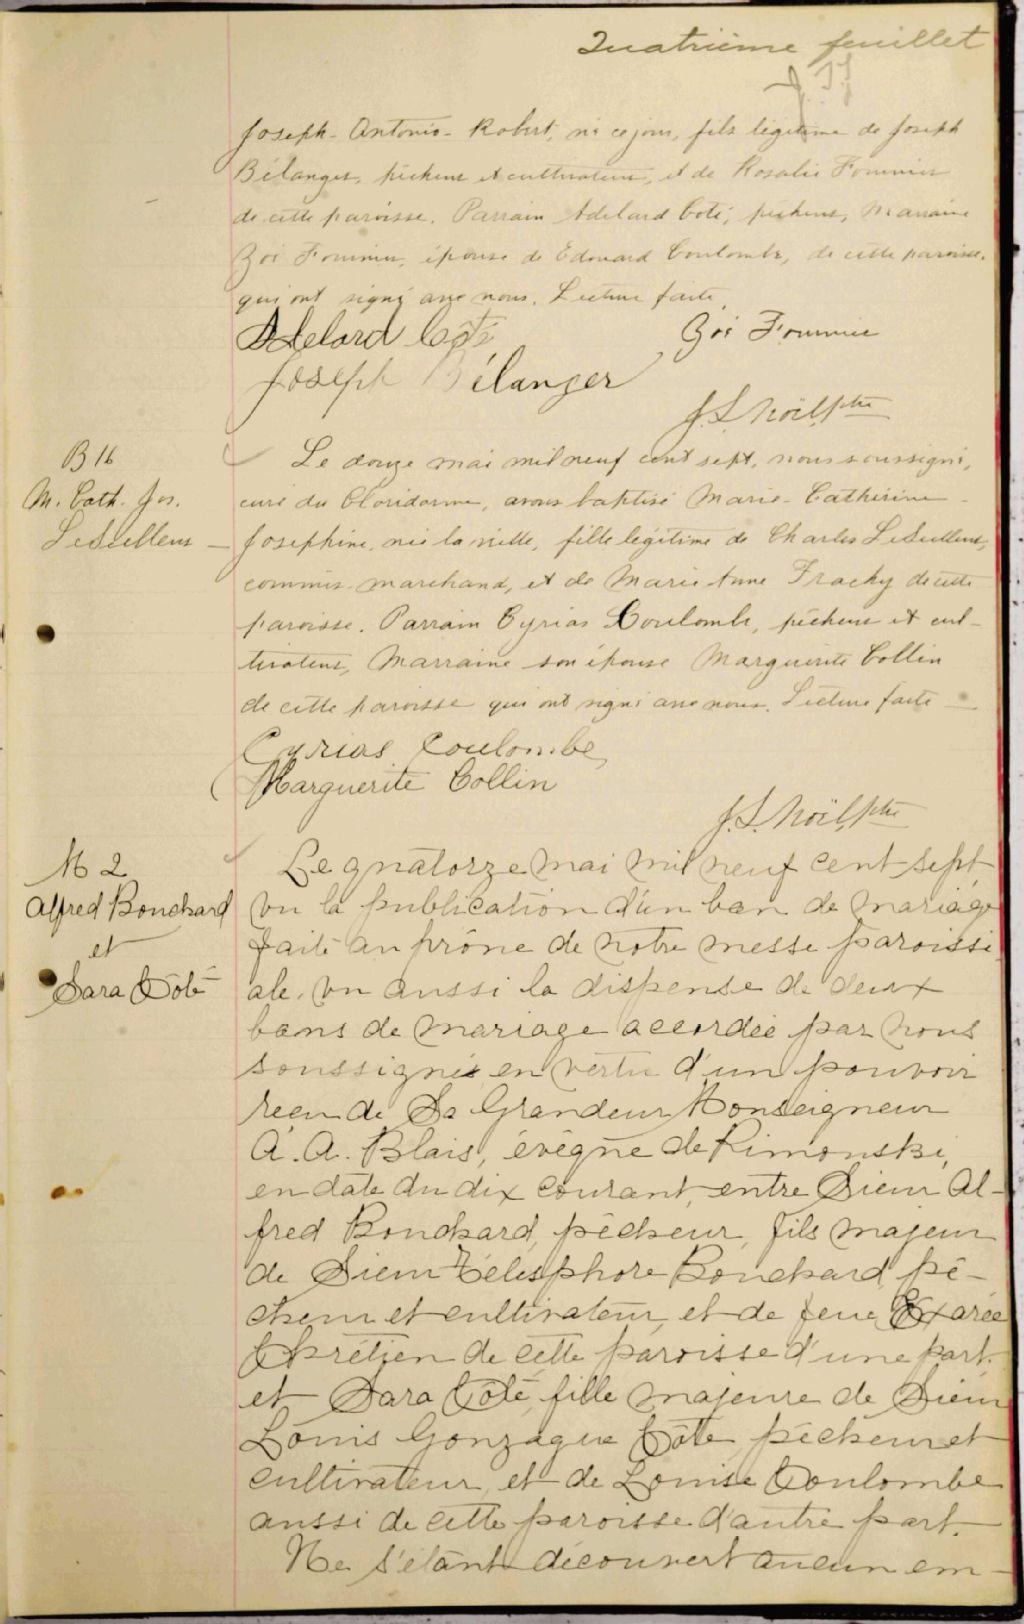 Quatrième feuillet
Joseph-Antonio-Robert, né ce jour, fils légitime de Joseph
Bélanger, pêcheur et cultivateur, et de Rosalie Fournier
de cette paroisse. Parrain Adelard Coté, pêcheur, Marraine
Zoé Fournier, épouse de Edouard Coulombe, de cette paroisse.
qui ont signé avec nous. Lecture faite.
Adelard Côté Zoé Fournier
Joseph Bélanger
J. S. Noël, ptre
B 16
M. Cath. Jos.
LeSeelleur
Le douze mai mil neuf cent sept, nous soussigné,
curé du Cloridorme, avons baptisé Marie-Catherine
Josephine, née la veille, fille légitime de Charles LeSeelleur,
commis-marchand, et de Marie Anne Fracky de cette
paroisse. Parrain Cyrias Coulombe, pêcheur et cul-
tivateur, Marraine son épouse Marguerite Collin
de cette paroisse qui ont signé avec nous. Lecture faite
Cyrias Coulombe
Marguerite Collin
J. S. Noël, ptre
M 2
Alfred Bouchard
et
Sara Côté
Le quatorze mai mil neuf cent sept
vu la publication d'un ban de mariage
faite au prône de notre messe paroissi-
ale, vu aussi la dispense de deux
bans de mariage accordée par nous
soussignés en vertu d'un pouvoir
reçu de Sa Grandeur Monseigneur
A. A. Blais, évêque de Rimouski,
en date du dix courant, entre Sieur Al-
fred Bouchard, pêcheur, fils majeur
de Sieur Télesphore Bouchard pê-
cheur et cultivateur, et de feue Exarée
Chrétien de cette paroisse d'une part.
et Sara Côté, fille majeure de Sieur
Louis Gonzague Côté pêcheur et
cultivateur, et de Louise Coulombe
aussi de cette paroisse d'autre part.
Ne s'étant découvert aucun em-